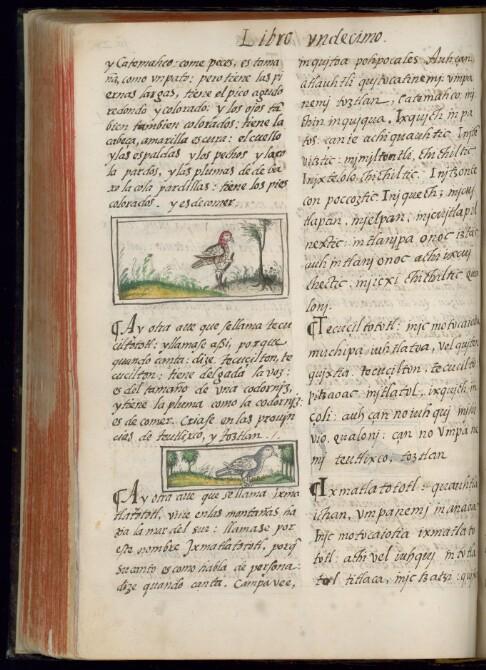 Libro vndecimo.
y Catemahco: come peces, es tama
ña, como vn pato: pero tiene las pi
ernas largas, tiene el pico agudo
redondo y colorado: y los ojos tã
bien tambien colorados: tiene la
cabeça, amarilla escura: el cuello
y las espaldas y los pechos y la
pardos, y las plumas de de
la cola pardillas: tiene los pies
colorados. y es de comer.
¶Ay otra aue que se llama tecu
ciltototl: y llamase assi, porque
quando canta: dize tecucilton, te
cucilton: tiene delgada la voz:
es del tamaño de vna codorniz,
y tiene la pluma como la codorniz:
es de comer. Criase en las prouin
cias de teutlixco, y toztlan.
¶Ay otra aue que se llama ixma
tlatototl, viue en las montañas ha
zia la mar del sur: llamase por
este nombre Ixmatlatototl, porq̃
su canto es como habla de persona:
dize quando canta. Campa vee,
atlauhtli quitocatinemj: vmpa
nemj toztlan, Catemahco, mj
chin inquiqua. Ixquich in pa
tos: can ie achi quauhtic. Inj
vitztic: mjmjltontle, chichiltic
Injxtelolo chichiltic. Injtzonte
con poccoztic. Injquech, mjcuj
tlapan, mjelpan; mjcuitlapil
nextic: mtlanjpa onoc iztac
auh mtlanj onoc achi ixcuj
chectic, mjicxi chichiltic qua
lonj.
¶Tecuciltototl: injc motocaiotia
muchipa iuhtlatoa, vel quiton
quixtia, tecucilton, tecucilto
pitzaoac mjtlatol, ixquich in
çoli: auh çan no iuhquj mjhuj
vio, qualonj: çan no vmpa ne
mj teutlixco, toztlan
¶Ixmatlatototl: quauhtla
ichan, vmpa nemj in anaoac
Injc motocaiotia ixmatlato
totl: achi vel iuhquj in
titlaca, injc tzatzi: